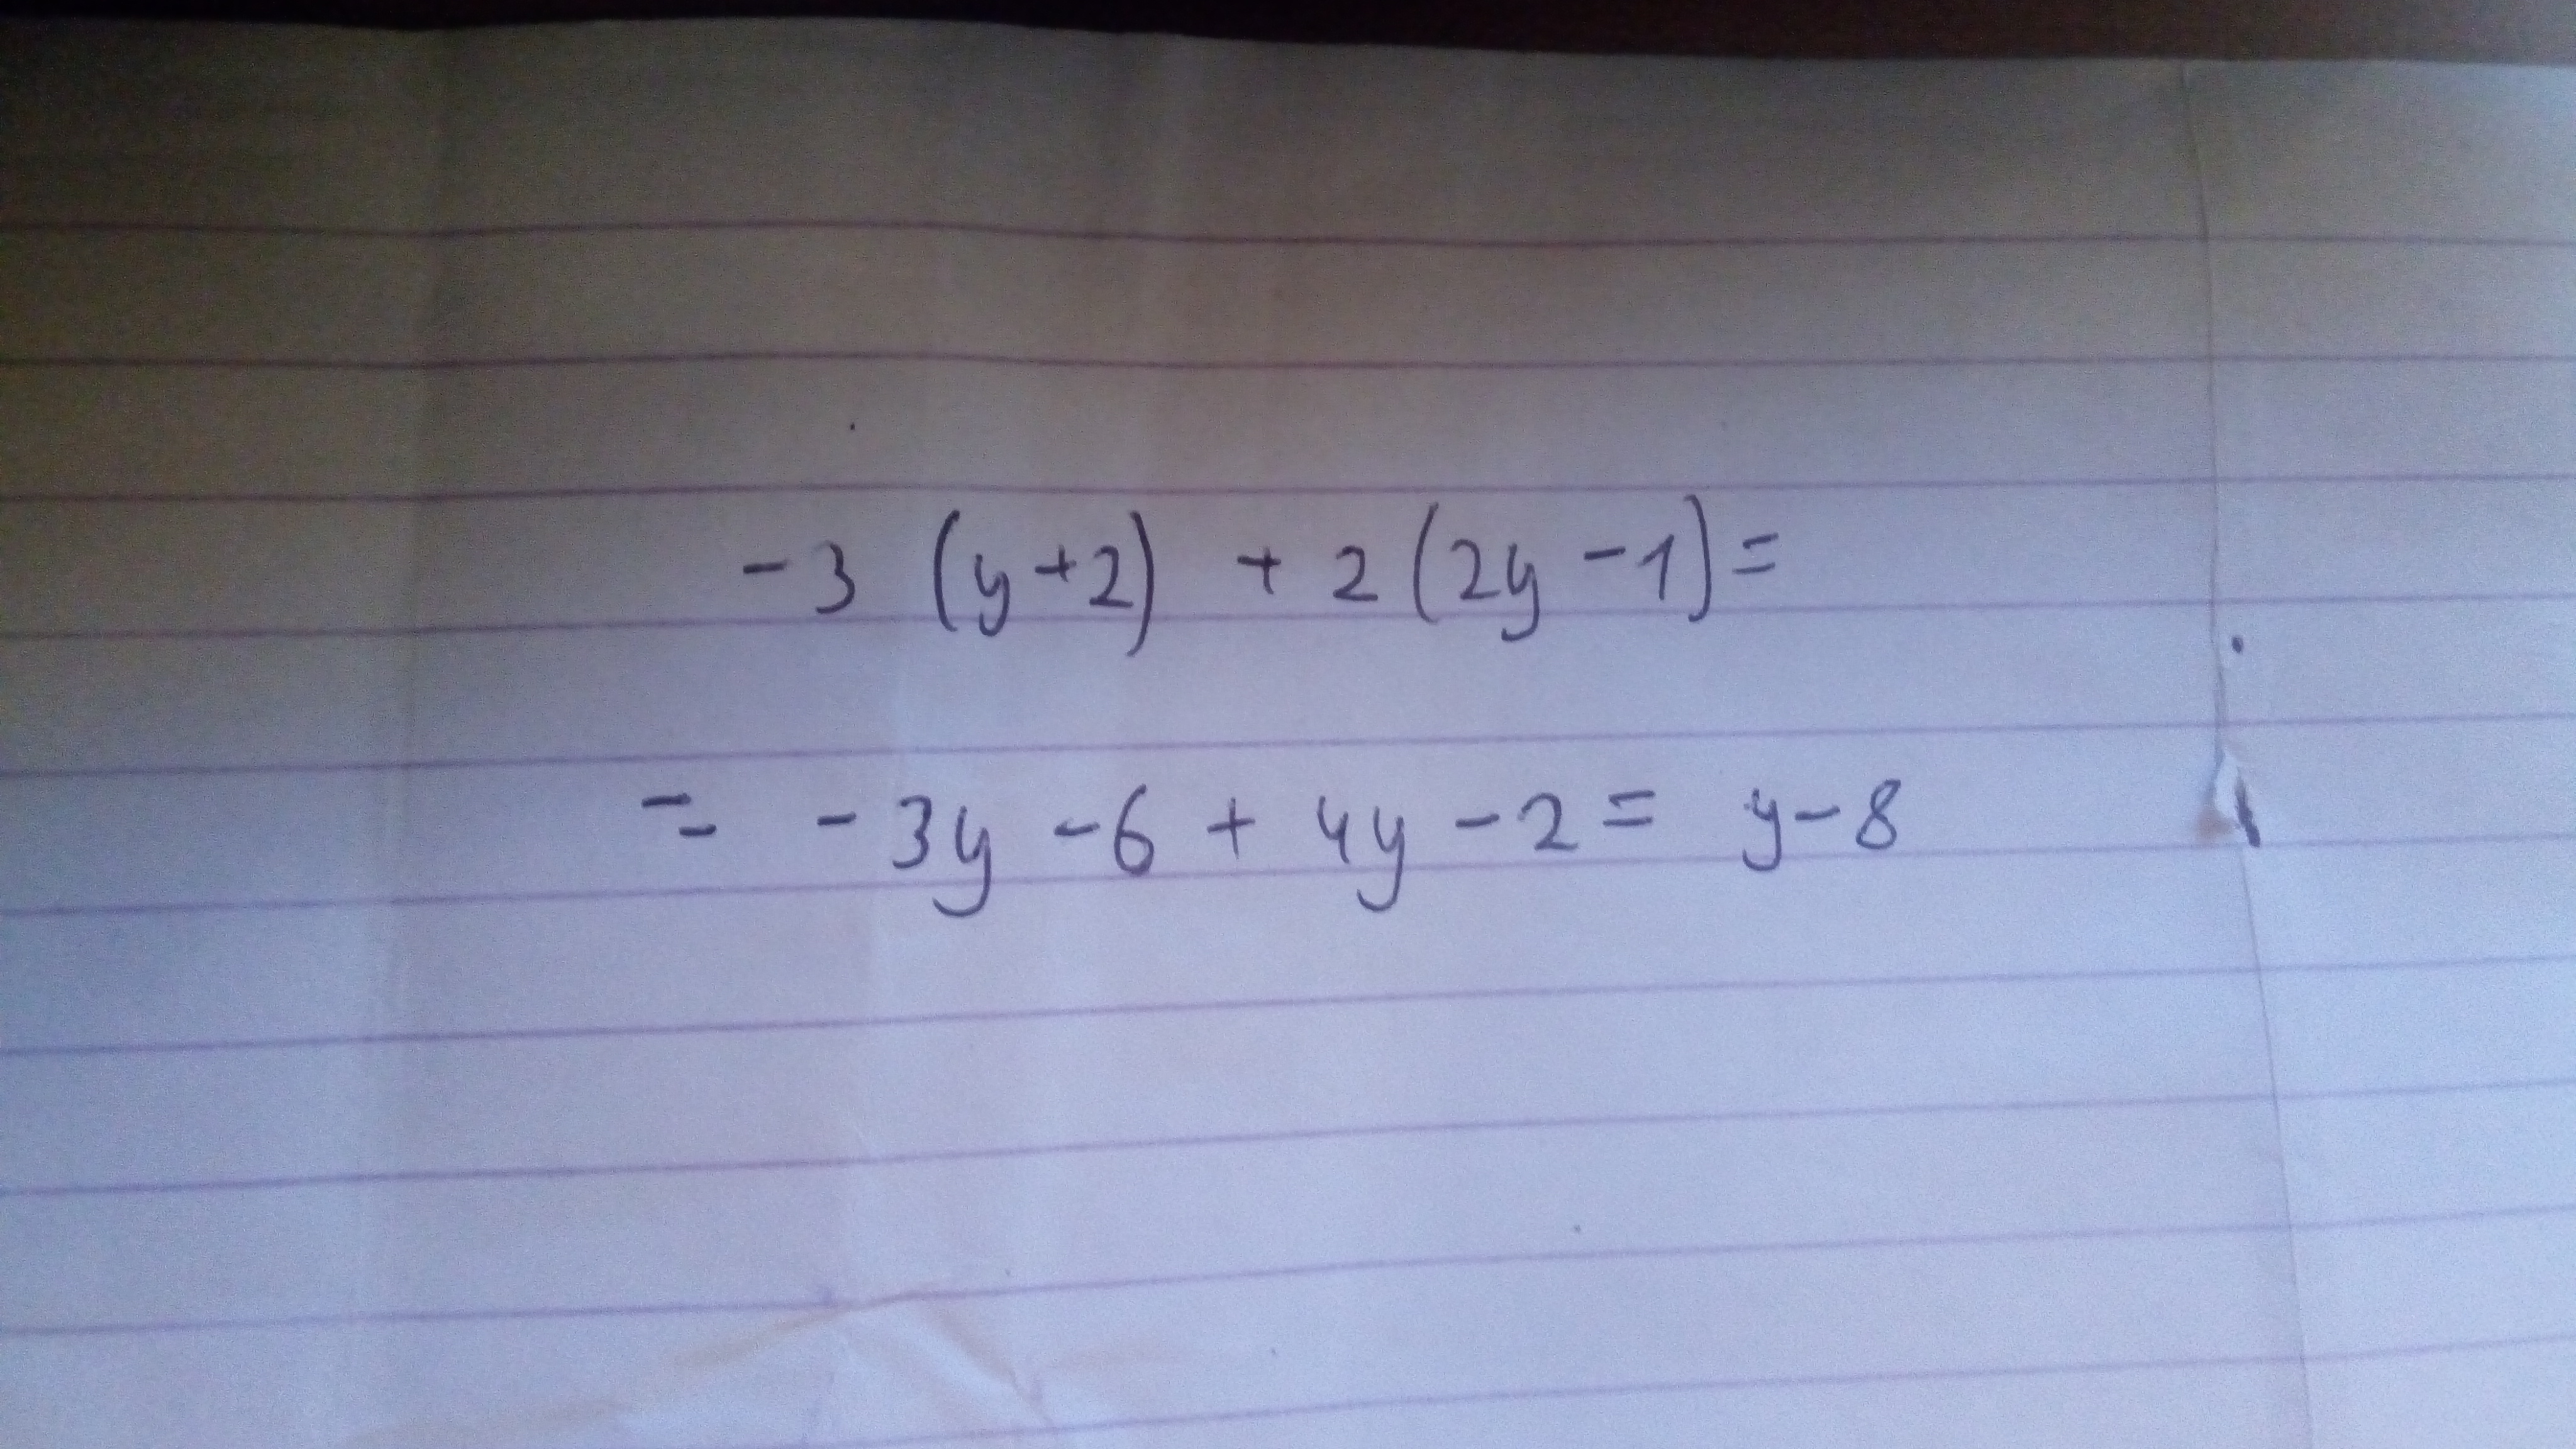 -3 (y+2) + 2 (2y -1) =
= -3y -6 + 4y -2 = y-8